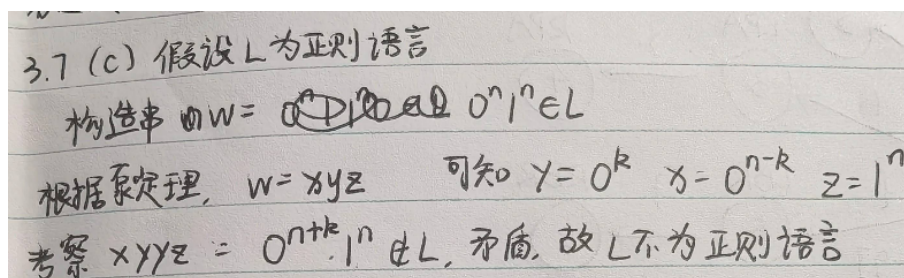 3.7 (c) 假设L为正则语言
构造串 w = 0ⁿ1ⁿ∈L
根据泵定理, w=xyz 可知 y=0ᵏ x=0ⁿ⁻ᵏ z=1ⁿ
考察 xyyz = 0ⁿ⁺ᵏ·1ⁿ ∉L, 矛盾, 故L不为正则语言